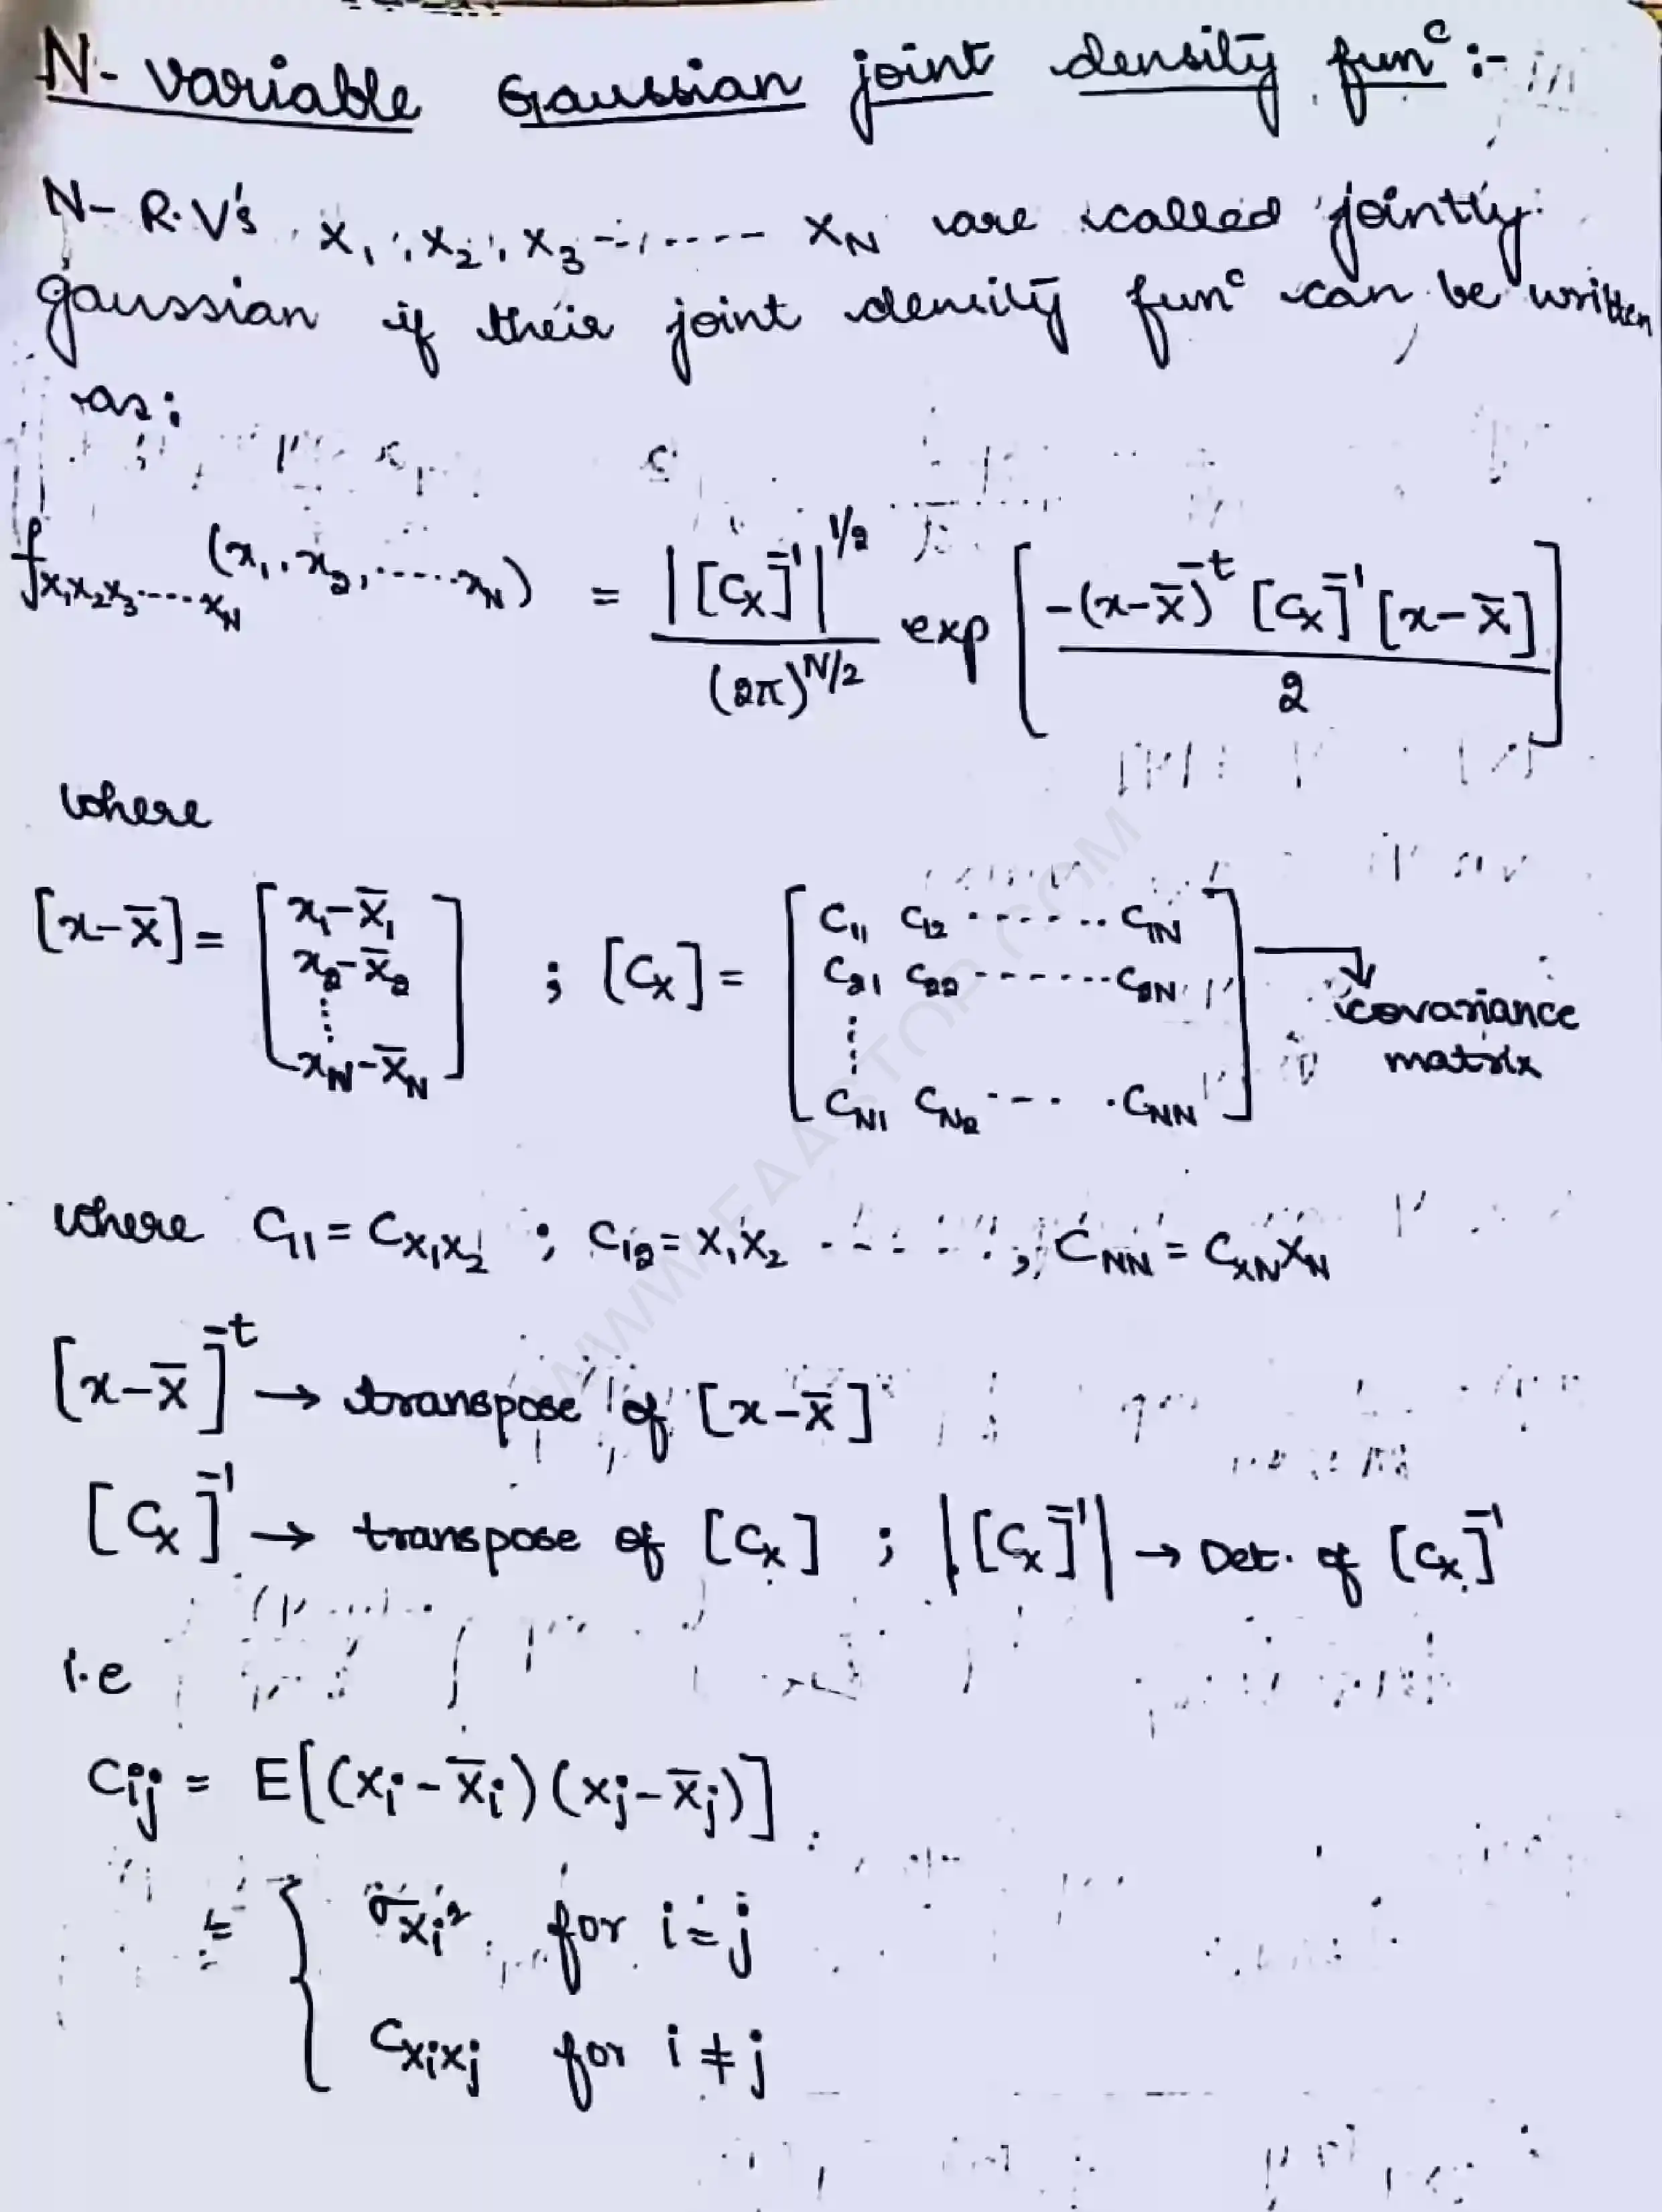 N- variable Gaussian joint density funᶜ :-
N- R.V's X₁, X₂, X₃ ------- X_N are called jointly
gaussian if their joint density funᶜ can be written
as:
f_{X₁X₂X₃----X_N} (x₁, x₂, ..... x_N) = |[C_X]⁻¹|^{1/2} / (2π)^{N/2} exp [ -(x-X̄)^{-t} [C_X]⁻¹ [x-X̄] / 2 ]
where
[x-X̄] = [ x₁-X̄₁ x₂-X̄₂ ⋮ x_N-X̄_N ] ; [C_X] = [ C₁₁ C₁₂ ....... C_{1N} C₂₁ C₂₂ ------- C_{2N} ⋮ C_{N1} C_{N2} ---- C_{NN} ] → covariance matrix
where C₁₁ = C_{X₁X₂} ; C₁₂ = X₁X₂ ------- ; C_{NN} = C_{X_N X_N}
[x-X̄]^{-t} → transpose of [x-X̄]
[C_X]⁻¹ → transpose of [C_X] ; |[C_X]⁻¹| → Det. of [C_X]⁻¹
i.e
C_{ij} = E[(X_i - X̄_i) (X_j - X̄_j)]
= { σ_{X_i}² for i = j
C_{X_i X_j} for i ≠ j